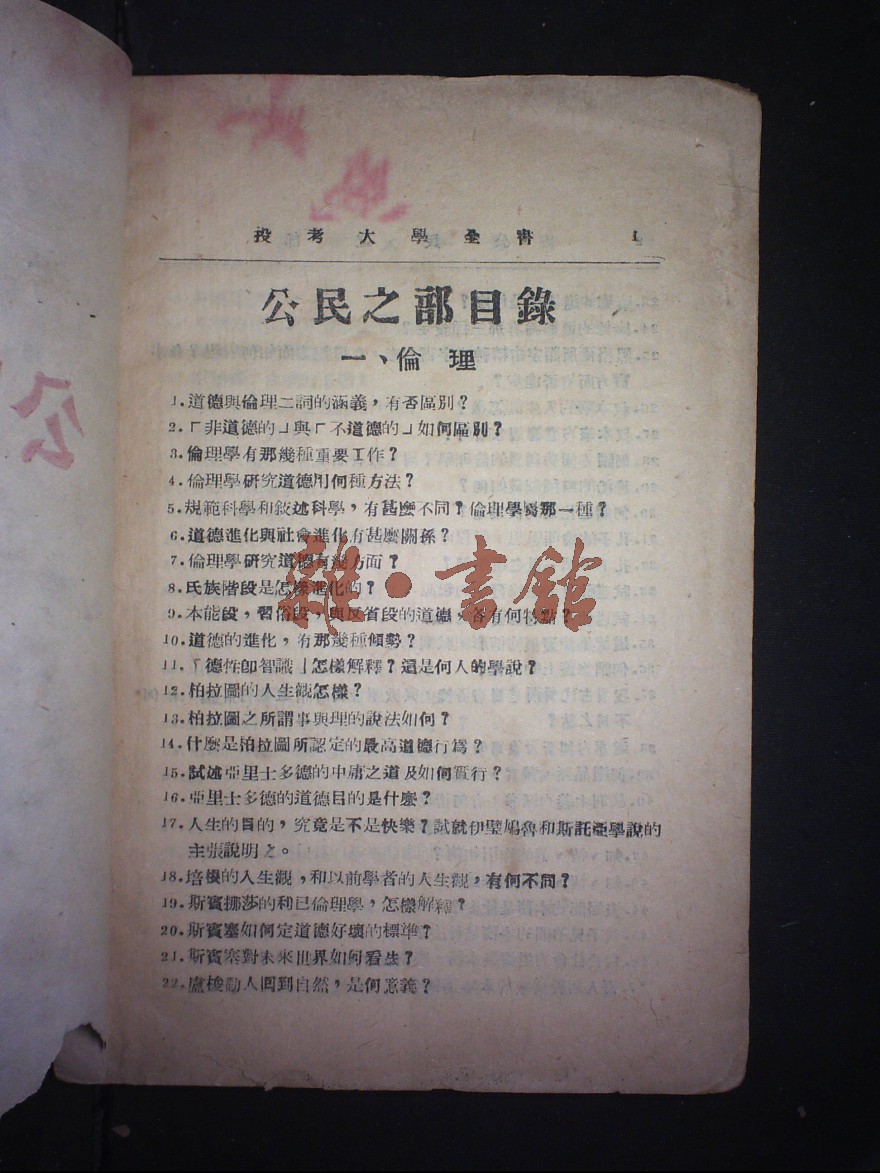 投考大學全書 1
公民之部目錄
一、倫理
1.道德與倫理二詞的涵義，有否區別？
2.「非道德的」與「不道德的」如何區別？
3.倫理學有那幾種重要工作？
4.倫理學研究道德用何種方法？
5.規範科學和敘述科學，有甚麼不同？倫理學屬那一種？
6.道德進化與社會進化有甚麼關係？
7.倫理學研究道德有幾方面？
8.民族階段是怎樣進化的？
9.本能段，習俗段，與反省段的道德，各有何特點？
10.道德的進化，有那幾種傾勢？
11.「德性卽智識」怎樣解釋？這是何人的學說？
12.柏拉圖的人生觀怎樣？
13.柏拉圖之所謂事與理的說法如何？
14.什麼是柏拉圖所認定的最高道德行爲？
15.試述亞里士多德的中庸之道及如何實行？
16.亞里士多德的道德目的是什麼？
17.人生的目的，究竟是不是快樂？試就伊壁鳩魯和斯託亞學說的
主張說明之。
18.培根的人生觀，和以前學者的人生觀，有何不同？
19.斯賓挪莎的利己倫理學，怎樣解釋？
20.斯賓塞如何定道德好壞的標準？
21.斯賓塞對未來世界如何看法？
22.盧梭勸人囘到自然，是何意義？
雜·書館
公